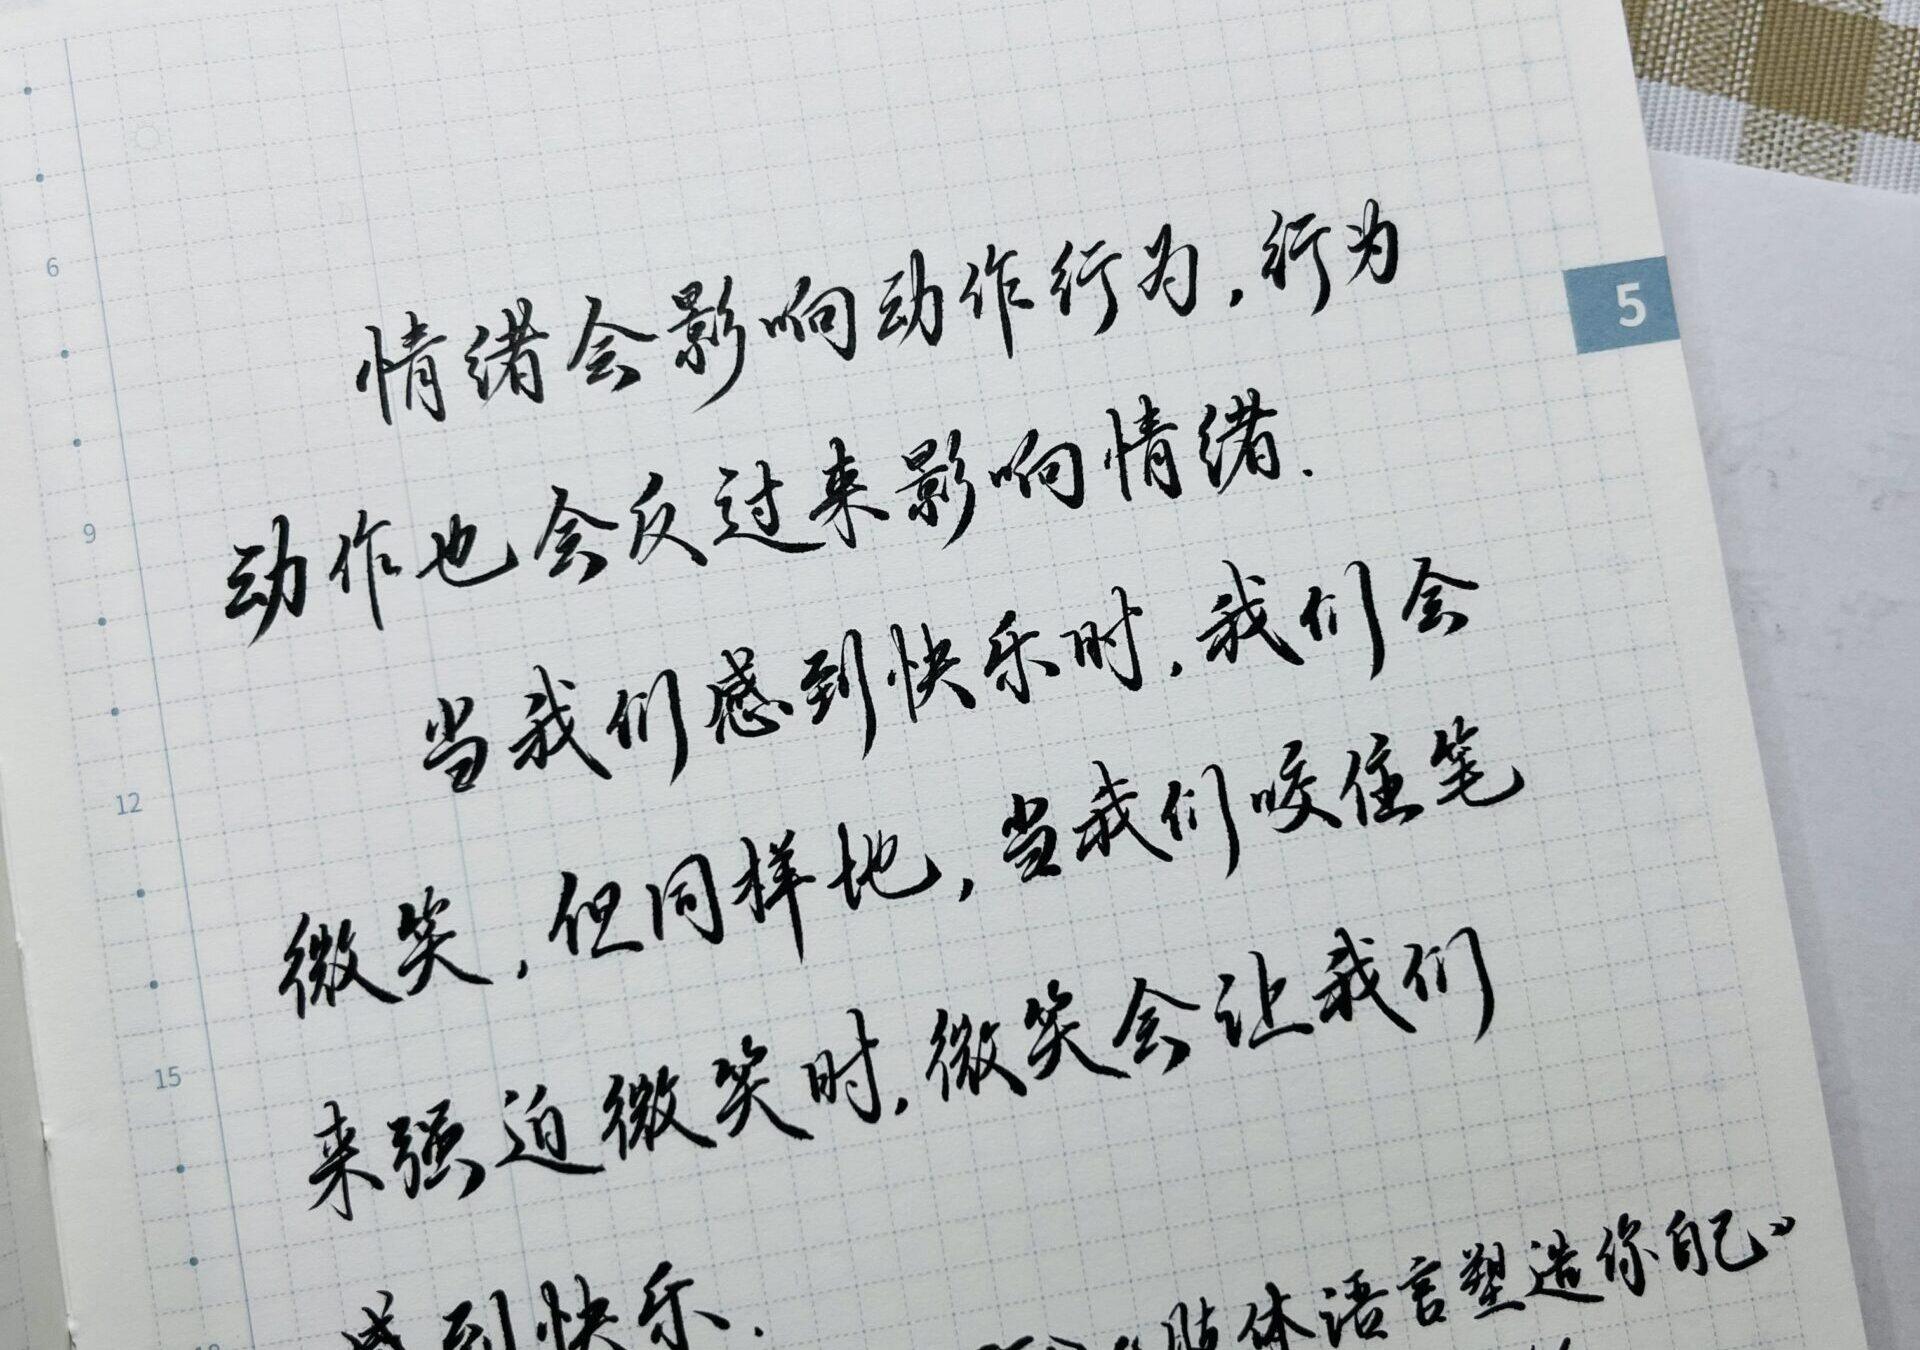 5
6
情绪会影响动作行为，行为
动作也会反过来影响情绪.
9
当我们感到快乐时，我们会
12
微笑，但同样地，当我们咬住笔
来强迫微笑时，微笑会让我们
15
感到快乐.
肢体语言塑造你自己》